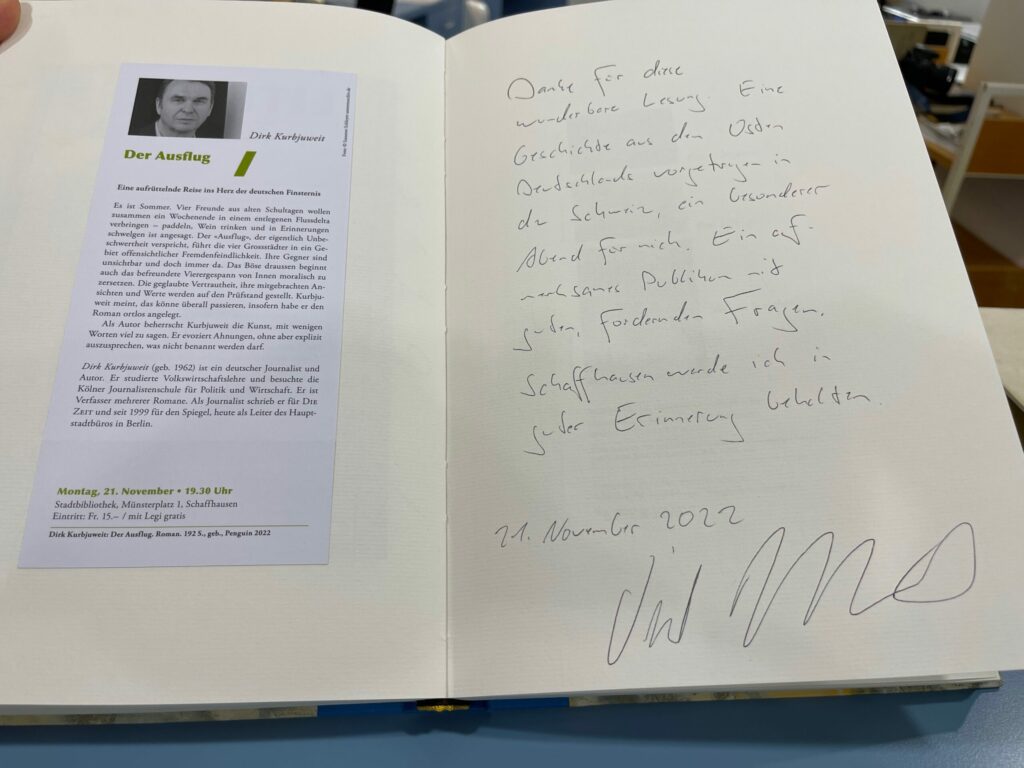 Dirk Kurbjuweit
Der Ausflug
Eine aufrüttelnde Reise ins Herz der deutschen Finsternis
Es ist Sommer. Vier Freunde aus alten Schultagen wollen
zusammen ein Wochenende in einem entlegenen Flussdelta
verbringen – paddeln, Wein trinken und in Erinnerungen
schwelgen ist angesagt. Der «Ausflug», der eigentlich Unbe-
schwertheit verspricht, führt die vier Grossstädter in ein Ge-
biet offensichtlicher Fremdenfeindlichkeit. Ihre Gegner sind
unsichtbar und doch immer da. Das Böse draussen beginnt
auch das befreundete Vierergespann von Innen moralisch zu
zersetzen. Die geglaubte Vertrautheit, ihre mitgebrachten An-
sichten und Werte werden auf den Prüfstand gestellt. Kurbju-
weit meint, das könne überall passieren, insofern habe er den
Roman ortlos angelegt.
Als Autor beherrscht Kurbjuweit die Kunst, mit wenigen
Worten viel zu sagen. Er evoziert Ahnungen, ohne aber explizit
auszusprechen, was nicht benannt werden darf.
Dirk Kurbjuweit (geb. 1962) ist ein deutscher Journalist und
Autor. Er studierte Volkswirtschaftslehre und besuchte die
Kölner Journalistenschule für Politik und Wirtschaft. Er ist
Verfasser mehrerer Romane. Als Journalist schrieb er für DIE
ZEIT und seit 1999 für den Spiegel, heute als Leiter des Haupt-
stadtbüros in Berlin.
Montag, 21. November • 19.30 Uhr
Stadtbibliothek, Münsterplatz 1, Schaffhausen
Eintritt: Fr. 15.– / mit Legi gratis
Dirk Kurbjuweit: Der Ausflug. Roman. 192 S., geb., Penguin 2022
Danke für diese
wunderbare Lesung. Eine
Geschichte aus dem Osten
Deutschlands vorgetragen in
der Schweiz, ein besonderer
Abend für mich. Ein auf-
merksames Publikum mit
guten, fordernden Fragen.
Schaffhausen werde ich in
guter Erinnerung behalten.
21. November 2022